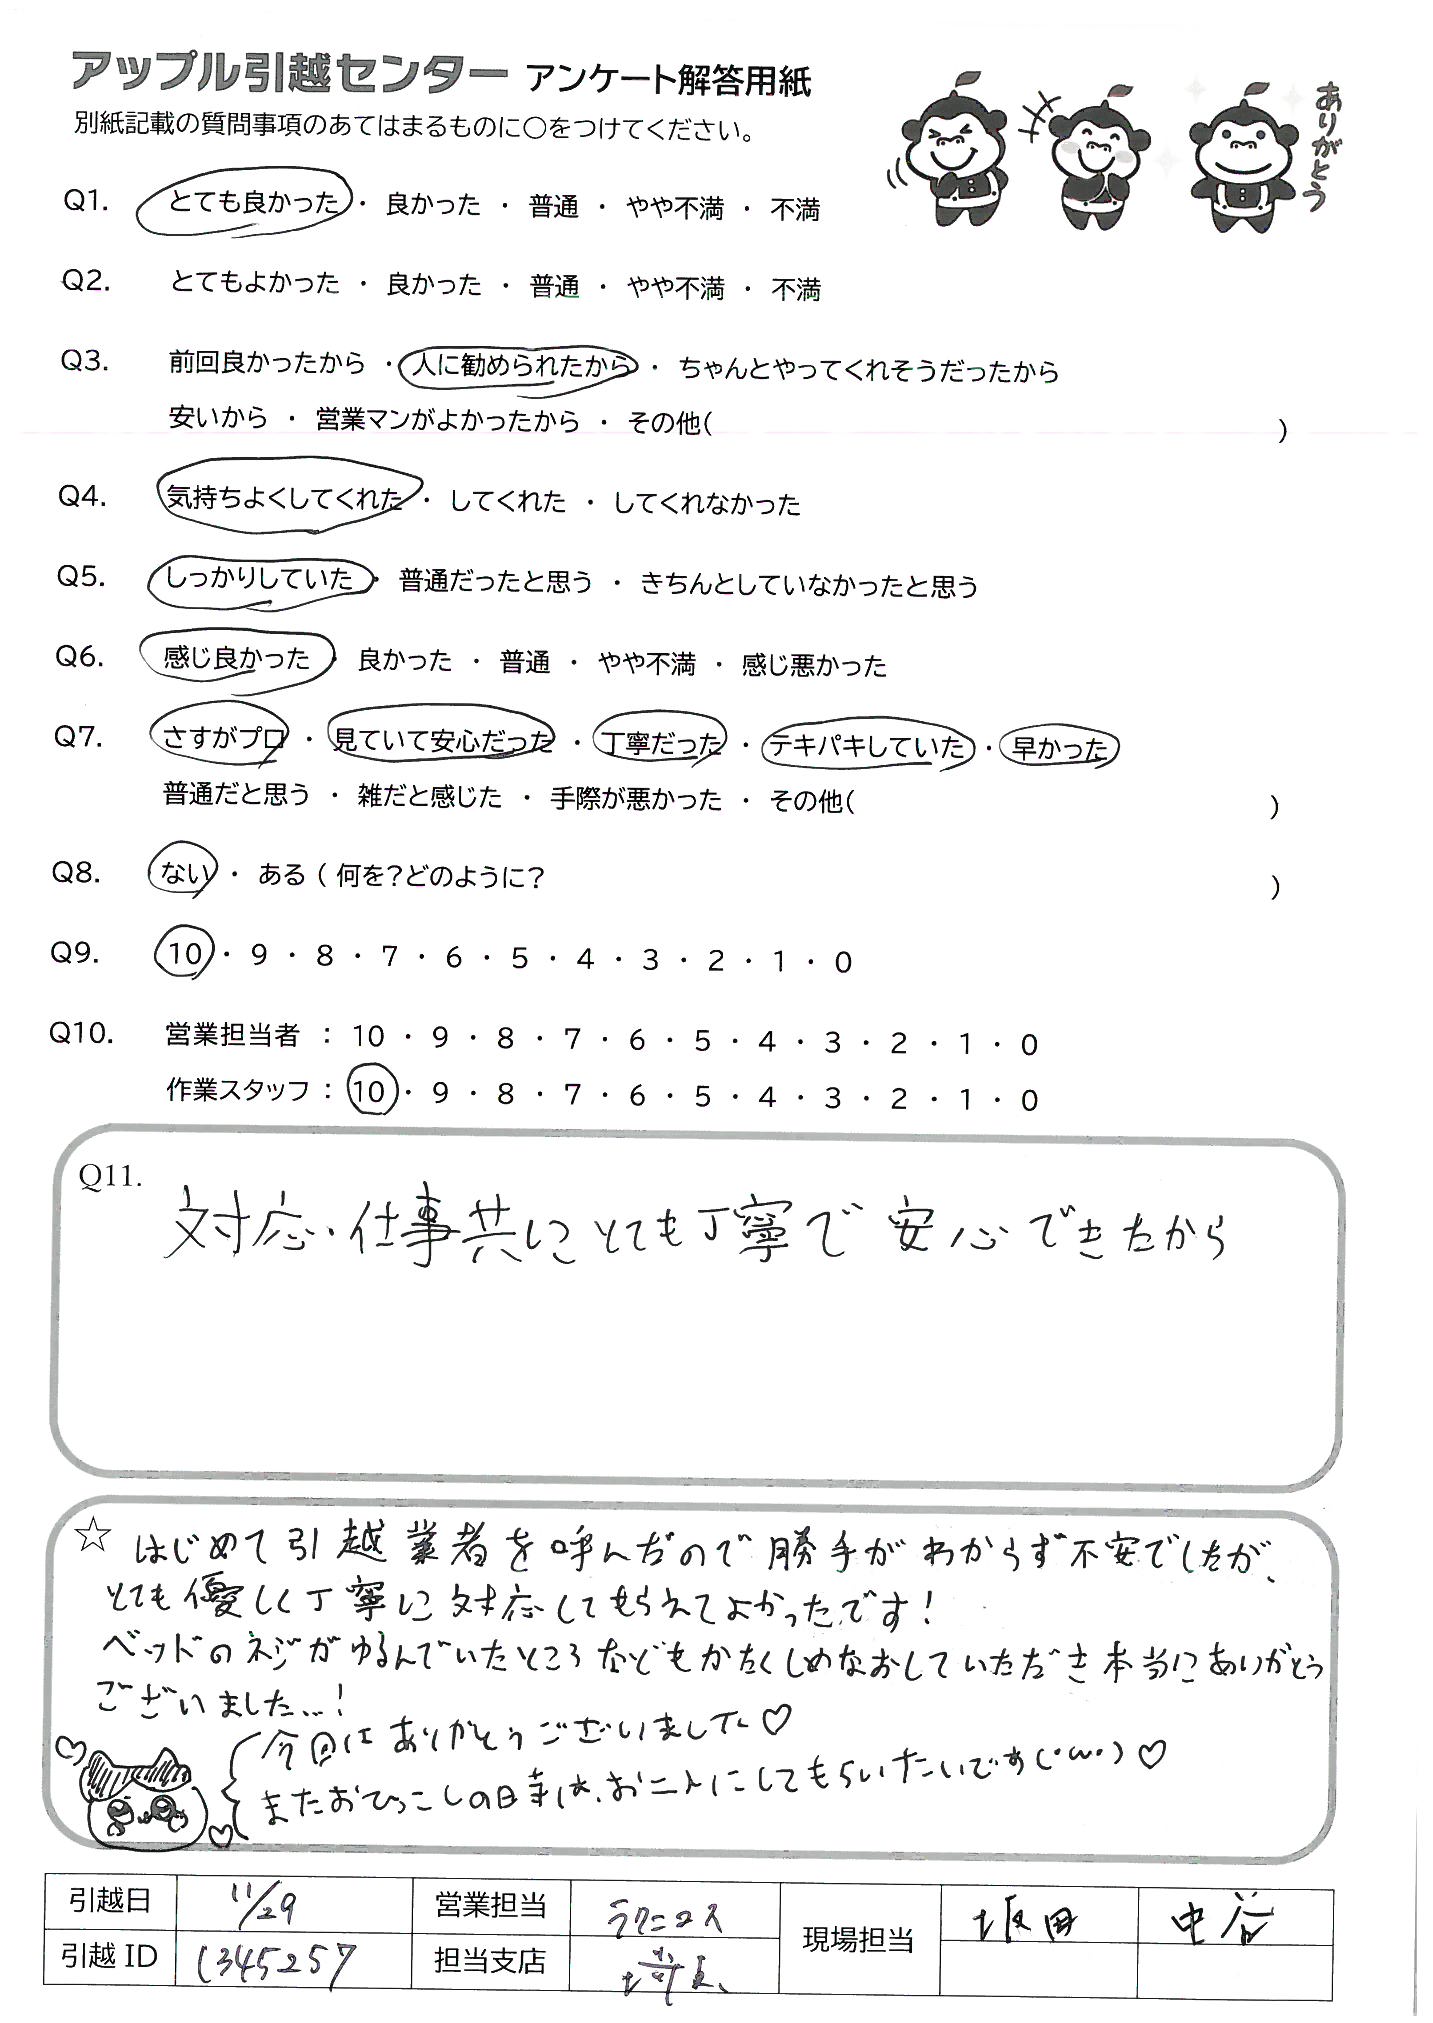 アップル引越センター アンケート解答用紙
別紙記載の質問事項のあてはまるものに○をつけてください。
ありがとう
Q1. とても良かった ・ 良かった ・ 普通 ・ やや不満 ・ 不満
Q2. とてもよかった ・ 良かった ・ 普通 ・ やや不満 ・ 不満
Q3. 前回良かったから ・ 人に勧められたから ・ ちゃんとやってくれそうだったから
安いから ・ 営業マンがよかったから ・ その他( )
Q4. 気持ちよくしてくれた ・ してくれた ・ してくれなかった
Q5. しっかりしていた ・ 普通だったと思う ・ きちんとしていなかったと思う
Q6. 感じ良かった ・ 良かった ・ 普通 ・ やや不満 ・ 感じ悪かった
Q7. さすがプロ ・ 見ていて安心だった ・ 丁寧だった ・ テキパキしていた ・ 早かった
普通だと思う ・ 雑だと感じた ・ 手際が悪かった ・ その他( )
Q8. ない ・ ある ( 何を?どのように? )
Q9. 10 ・ 9 ・ 8 ・ 7 ・ 6 ・ 5 ・ 4 ・ 3 ・ 2 ・ 1 ・ 0
Q10. 営業担当者 : 10 ・ 9 ・ 8 ・ 7 ・ 6 ・ 5 ・ 4 ・ 3 ・ 2 ・ 1 ・ 0
作業スタッフ : 10 ・ 9 ・ 8 ・ 7 ・ 6 ・ 5 ・ 4 ・ 3 ・ 2 ・ 1 ・ 0
Q11.
対応・仕事共にとても丁寧で安心できたから
☆ はじめて引越業者を呼んだので勝手がわからず不安でしたが、
とても優しく丁寧に対応してもらえてよかったです!
ベッドのネジがゆるんでいたところなどもかたくしめなおしていただき本当にありがとう
ございました…!
今回はありがとうございました♡
またおひっこしの日等は、お二人にしてもらいたいです(・ω・)♡
引越日 11/29 営業担当 ラクニコス 現場担当 坂田 中谷
引越 ID 1345257 担当支店